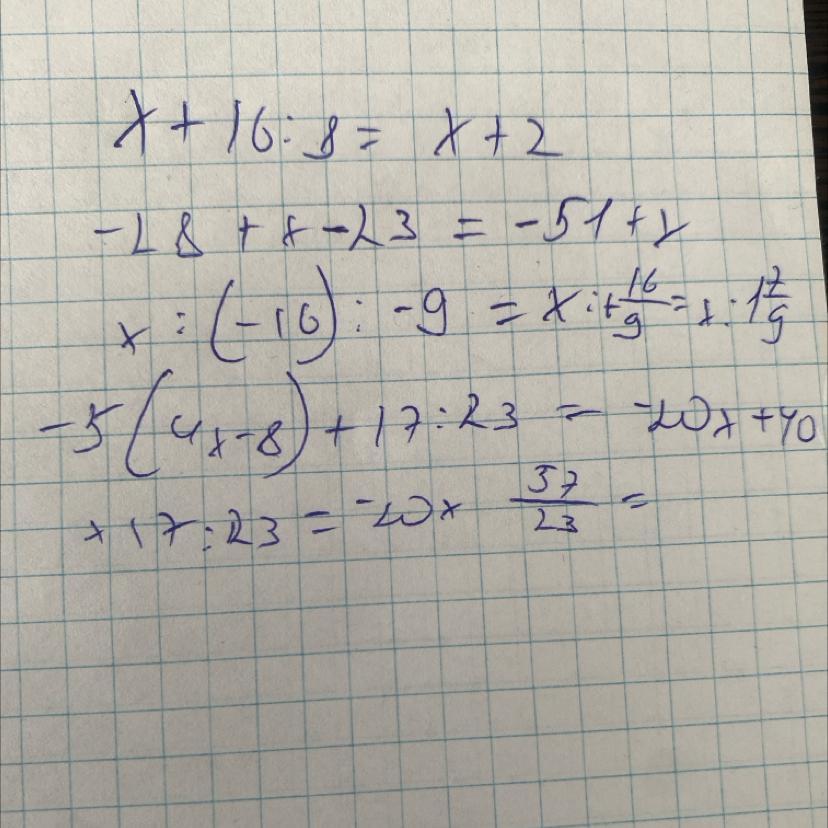 x + 16 : 8 = x + 2
-28 + x - 23 = -51 + x
x : (-16) : -9 = x : + 16/9 = x : 1 7/9
-5(4x-8) + 17 : 23 = -20x + 40
+ 17 : 23 = -20x 57/23 =